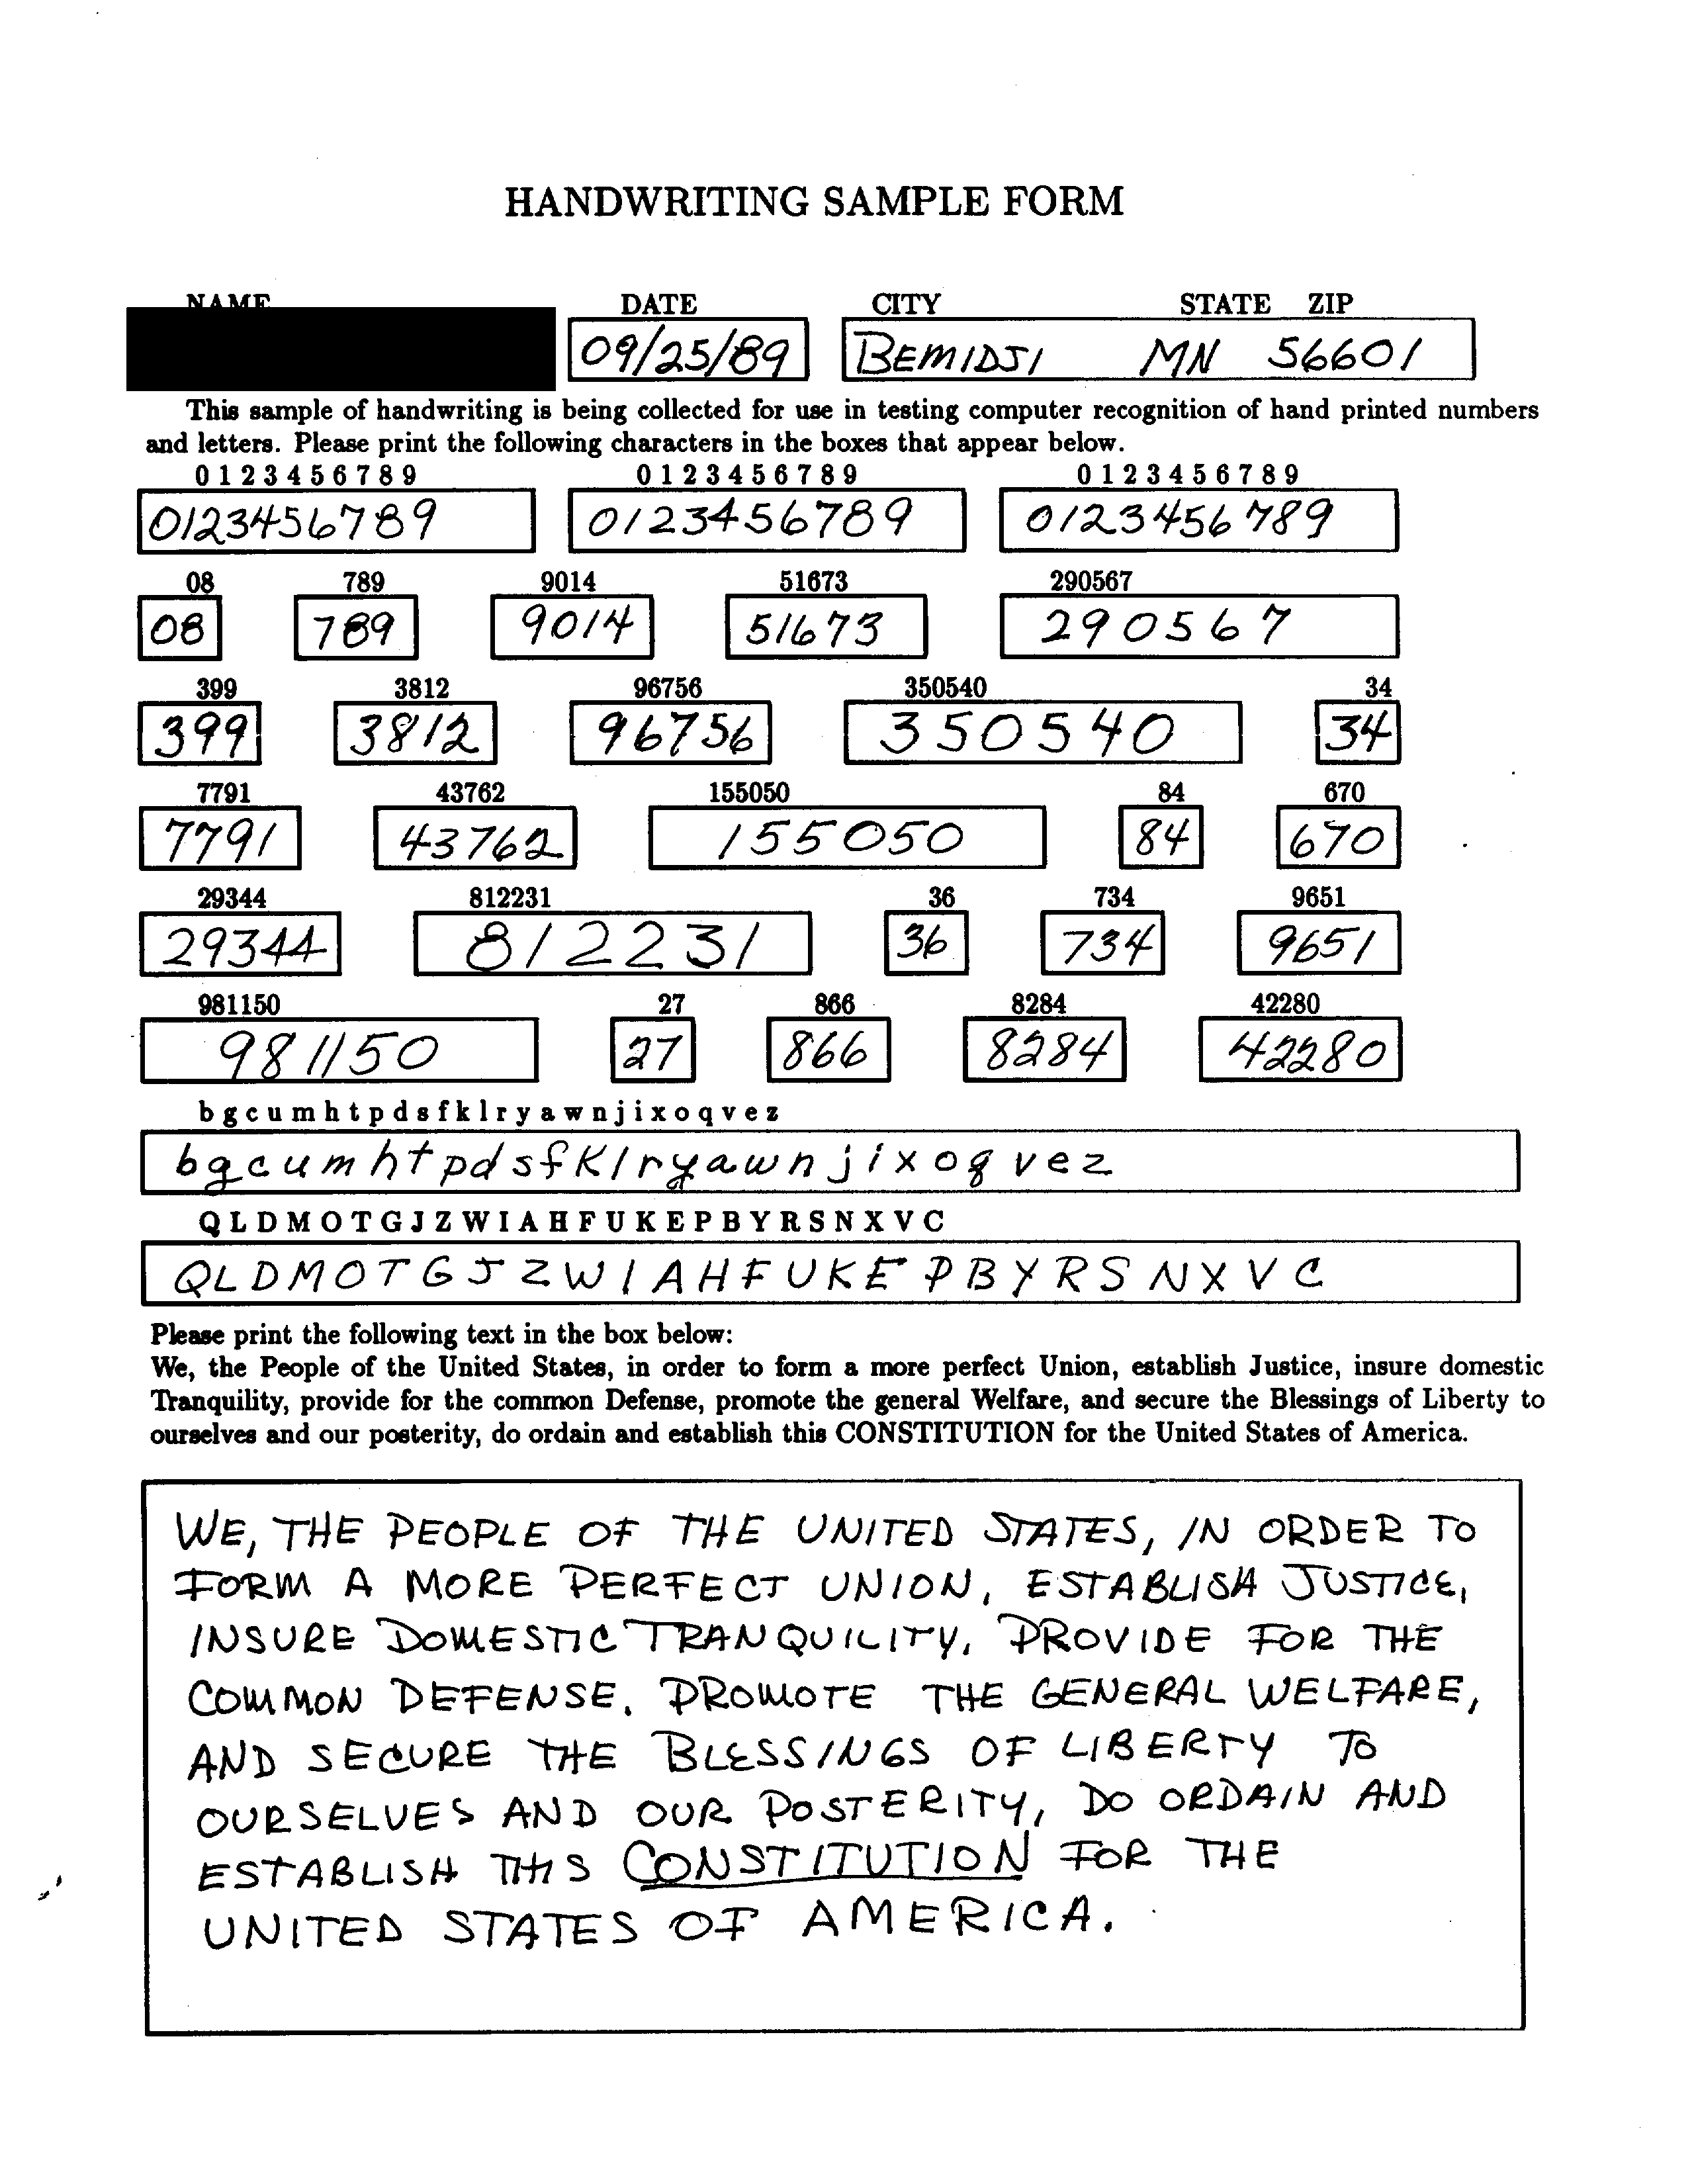 HANDWRITING SAMPLE FORM
NAME DATE CITY STATE ZIP
09/25/89 BEMIDJI MN 56601
This sample of handwriting is being collected for use in testing computer recognition of hand printed numbers
and letters. Please print the following characters in the boxes that appear below.
0 1 2 3 4 5 6 7 8 9 0 1 2 3 4 5 6 7 8 9 0 1 2 3 4 5 6 7 8 9
0123456789 0123456789 0123456789
08 789 9014 51673 290567
08 789 9014 51673 290567
399 3812 96756 350540 34
399 3812 96756 350540 34
7791 43762 155050 84 670
7791 43762 155050 84 670
29344 812231 36 734 9651
29344 812231 36 734 9651
981150 27 866 8284 42280
981150 27 866 8284 42280
b g c u m h t p d s f k l r y a w n j i x o q v e z
b g c u m h t p d s f k l r y a w n j i x o q v e z
Q L D M O T G J Z W I A H F U K E P B Y R S N X V C
Q L D M O T G J Z W I A H F U K E P B Y R S N X V C
Please print the following text in the box below:
We, the People of the United States, in order to form a more perfect Union, establish Justice, insure domestic
Tranquility, provide for the common Defense, promote the general Welfare, and secure the Blessings of Liberty to
ourselves and our posterity, do ordain and establish this CONSTITUTION for the United States of America.
WE, THE PEOPLE OF THE UNITED STATES, IN ORDER TO
FORM A MORE PERFECT UNION, ESTABLISH JUSTICE,
INSURE DOMESTIC TRANQUILITY, PROVIDE FOR THE
COMMON DEFENSE, PROMOTE THE GENERAL WELFARE,
AND SECURE THE BLESSINGS OF LIBERTY TO
OURSELVES AND OUR POSTERITY, DO ORDAIN AND
ESTABLISH THIS CONSTITUTION FOR THE
UNITED STATES OF AMERICA.